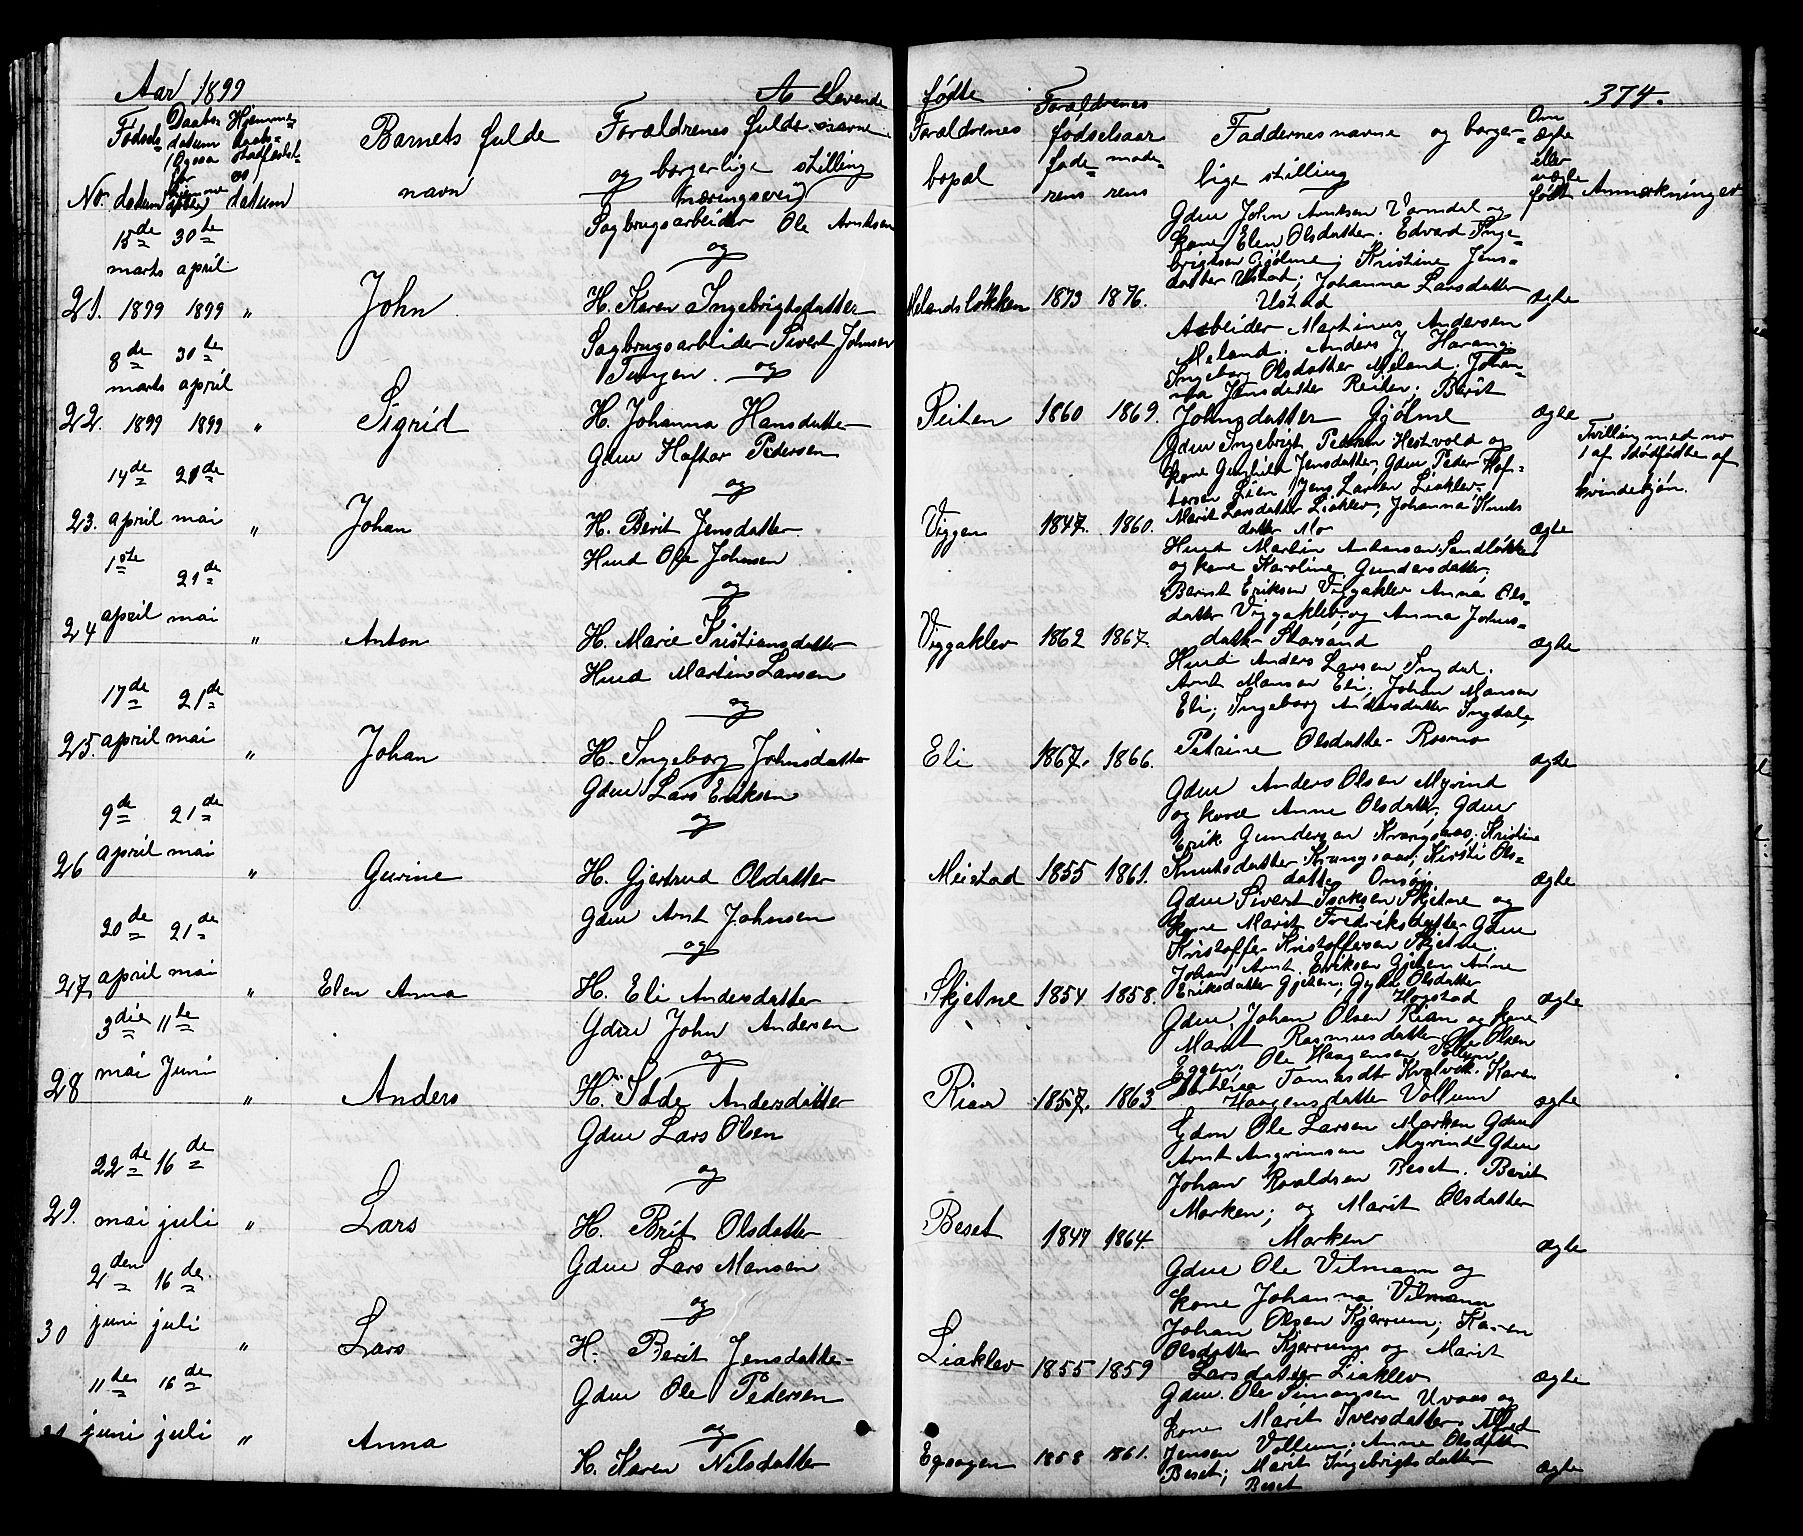 Aar 1899
A Levende
fødte
374.
Fødsels-
datum
Daabs-
datum
(Ogsaa
for
hjemme
døbte)
Hjemme-
daabs-
stadfæstel-
datum
No.
Barnets fulde
navn
Forældrenes fulde navne
og borgerlige stilling
(næringsvei)
Forældrenes
bopæl
Forældrenes
fødselsaar
fade- mode-
rens rens
Faddernes navne og borger-
lige stilling
Om
ægte
eller
uægte
født
Anmærkninger
15de 30te
marts april
21. 1899 1899 "
John
Sagbrugsarbeider Ole Arntsen
og
H. Karen Ingebrigtsdatter
Melandsløkken 1873 1876.
Gdm John Arntsen Varmdal og
kone Elen Olsdatter. Edvard Inge-
brigtsen Gjølme; Kristine Jens-
datter Ustad; Johanna Larsdatter
Ustad
ægte
8de 30te
marts april
22. 1899 1899 "
Sigrid
Sagbrugsarbeider Sivert Johnsen
Tungen. og
H. Johanna Hansdatter
Reiten 1860 1869.
Arbeider Martinus Andersen
Meland; Anders J. Harang;
Ingeborg Olsdatter Meland; Johan-
na Jensdatter Reiten; Berit
Johnsdatter Gjølme
ægte
14de 21de
23. april mai "
Johan
Gdm Haftor Pedersen
og
H. Berit Jensdatter
Viggen 1847. 1860.
Gdm Ingebrigt Pedersen Hestvold og
kone Gunhild Jensdatter; Gdm Peder Haf-
torsen Lien Jens Larsen Liaklev.
Marit Larsdatter Liaklev; Johanna Knuts
datter Mo
ægte
Tvilling med no
1 af dødfødte af
kvindekjøn.
1ste
21de
24 april mai "
Anton
Husd Ole Johnsen
og
H. Marie Kristiansdatter
Viggaklev 1862 1867.
Husd Martin Antonsen Sandløkken
og kone Karoline Gundersdatter;
Bernt Eriksen Viggaklev Anna Ols-
datter Viggaklev; og Anna Johns-
datter Storsand
ægte
17de 21de
25. april mai "
Johan
Husd Martin Larsen
og
H. Ingeborg Johnsdatter
Eli 1867. 1866.
Husd Anders Larsen Ingdal.
Arnt Monsen Eli; Johan Monsen
Eli; Ingeborg Andersdatter Ingdal;
Petrine Olsdatter Rosmo
ægte
9de 21de
26 april mai "
Gurine
Gdm Lars Eriksen
og
H. Gjertrud Olsdatter
Meistad 1855 1861.
Gdm Anders Olsen Myrind
og kone Anne Olsdatter; Gdm
Erik Gundersen Krangsaas; Kristine
Knutsdatter Krangsaas; Kirsti Ols-
datter Onsøy.
ægte
20de 21de
27. april mai "
Elen Anna
Gdm Arnt Johnsen
og
H. Eli Andersdatter
Skjetne 1854 1858.
Gdm Sivert Isaksen Skjetne og
kone Marit Fredriksdatter Gdm
Kristoffer Kristoffersen Skjetne.
Johan Arnt Eriksen Gjeten Anne
Eriksdatter Gjeten; Gyda Olsdatter
Hogstad
ægte
3die 11te
28 mai Juni "
Anders
Gdm John Andersen
og
H. Idde Andersdatter
Rian 1857. 1863.
Gdm Johan Olsen Rian og kone
Marit Rasmusdatter Ole Olsen
Eggen; Ole Haagensen Vollum;
Tomasdtr Kvalvik. Karen
Haagensdatter Vollum
ægte
22de 16de
29. mai juli "
Lars
Gdm Lars Olsen
og
H. Brit Olsdatter
Beset 1847 1864.
Gdm Ole Larsen Morken Gdm
Arnt Angrimsen Myrind Gdm
Johan Roaldsen Beset. Berit
Morken; og Marit Olsdatter
Morken
ægte
2den 16de
30 juni juli "
Lars
Gdm Lars Monsen
og
H. Berit Jensdatter
Liaklev 1855 1859
Gdm Ole Vilmann og
kone Johanna Vilmann
Johan Olsen Kjerrum; Karen
Olsdatter Kjerrum; og Marit
Larsdatter Liaklev
ægte
11de 16de
31 juni juli "
Anna
Gdm Ole Pedersen
og
H. Karen Nilsdatter
1858 1861.
Gdm. Ole Simonsen Uvaas og
kone Marit Iversdatter. Alfred
Jensen Vollum; Anne Olsdatter
Beset; Marit Ingebrigtsdatter
Beset
ægte